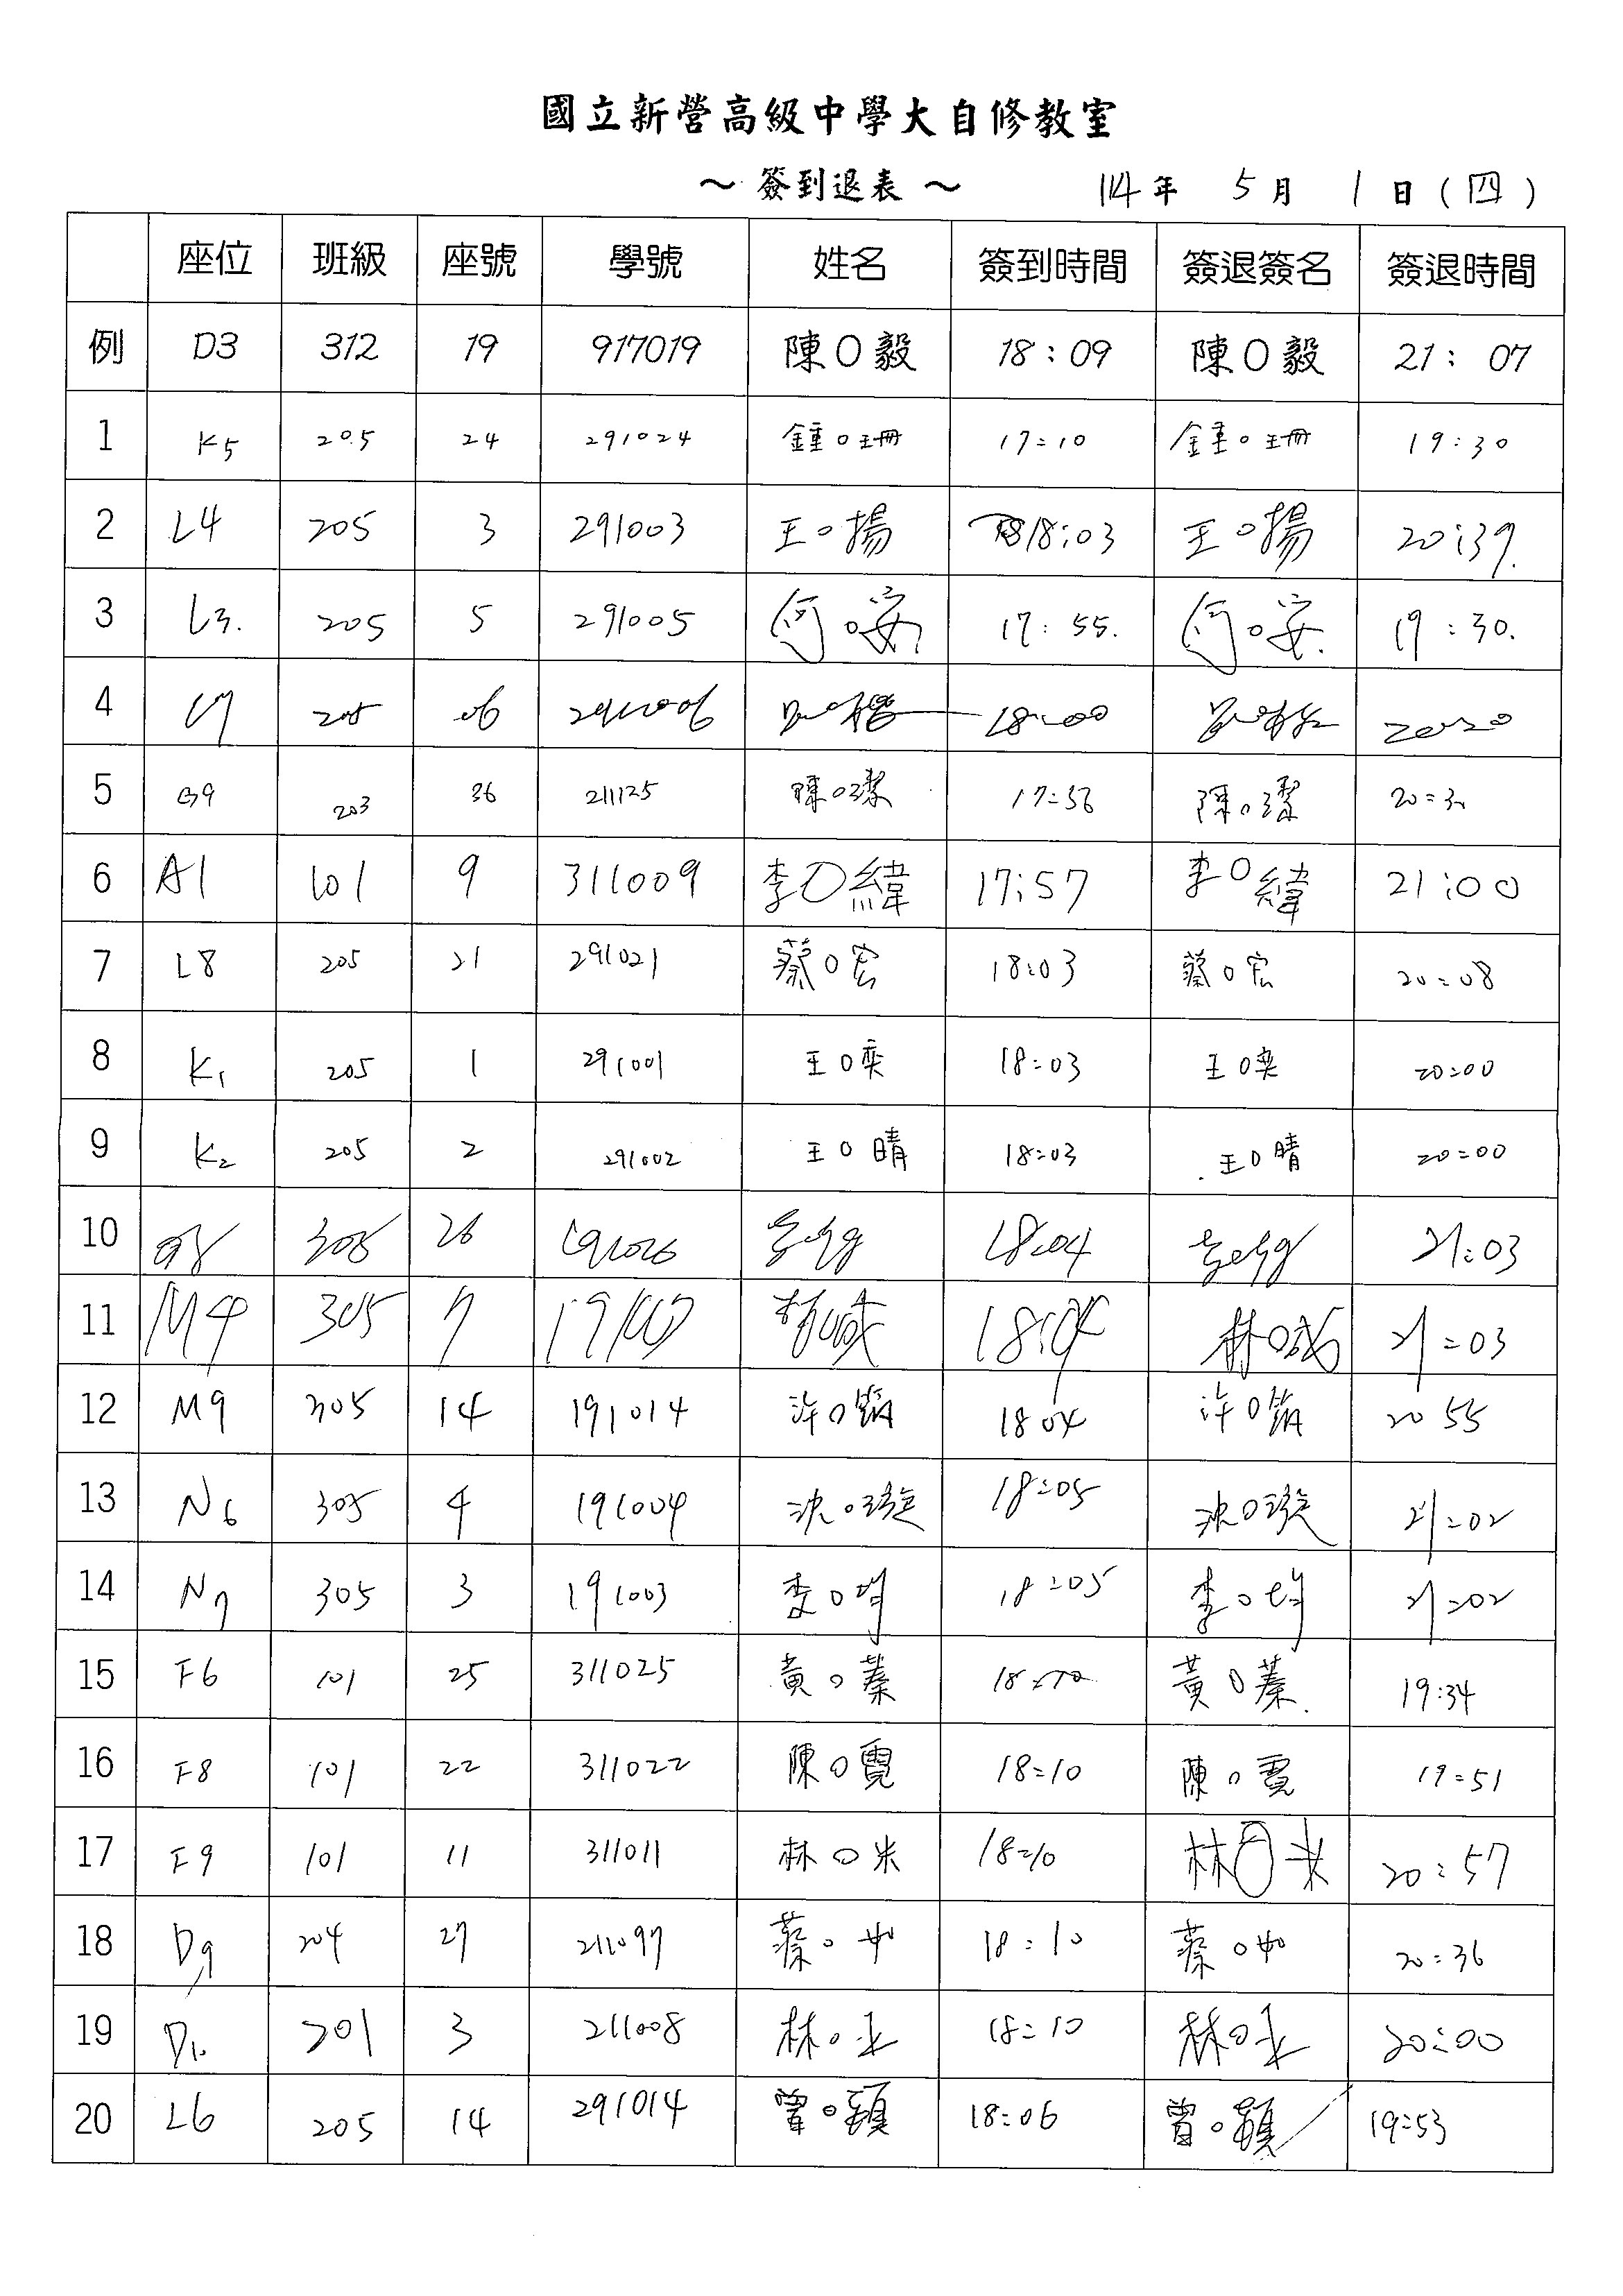 國立新營高級中學大自修教室
～簽到退表～ 114年 5月 1日(四)
座位 班級 座號 學號 姓名 簽到時間 簽退簽名 簽退時間
例 D3 312 19 917019 陳O毅 18:09 陳O毅 21:07
1 K5 205 24 291024 鍾O珊 17:10 鍾O珊 19:30
2 L4 205 3 291003 王O揚 18:03 王O揚 20:39.
3 L3. 205 5 291005 何O 17:55. 何O 19:30.
4 L7 205 06 291006 18:00 2020
5 G9 203 36 211125 陳O潔 17:56 陳O潔 20:30
6 A1 101 9 311009 李O緯 17:57 李O緯 21:00
7 L8 205 21 291021 蔡O宏 18:03 蔡O宏 20:08
8 K1 205 1 291001 王O奕 18:03 王O奕 20:00
9 K2 205 2 291002 王O晴 18:03 王O晴 20:00
10 305 26 191026 18:04 21:03
11 M4 305 7 191007 18:04 林O 21:03
12 M9 305 14 191014 許O筑 1804 許O筑 20 55
13 N6 305 4 191004 沈O璇 18:05 沈O璇 21:02
14 N7 305 3 191003 李O 18:05 李O 21:02
15 F6 101 25 311025 黃O蓁 18:10 黃O蓁 19:34
16 F8 101 22 311022 陳O霓 18:10 陳O霓 19:51
17 F9 101 11 311011 林O米 18:10 林O米 20:57
18 D9 204 27 211097 蔡O 18:10 蔡O 20:36
19 201 3 211008 林O 18:10 林O 20:00
20 L6 205 14 291014 曾O穎 18:06 曾O穎 19:53